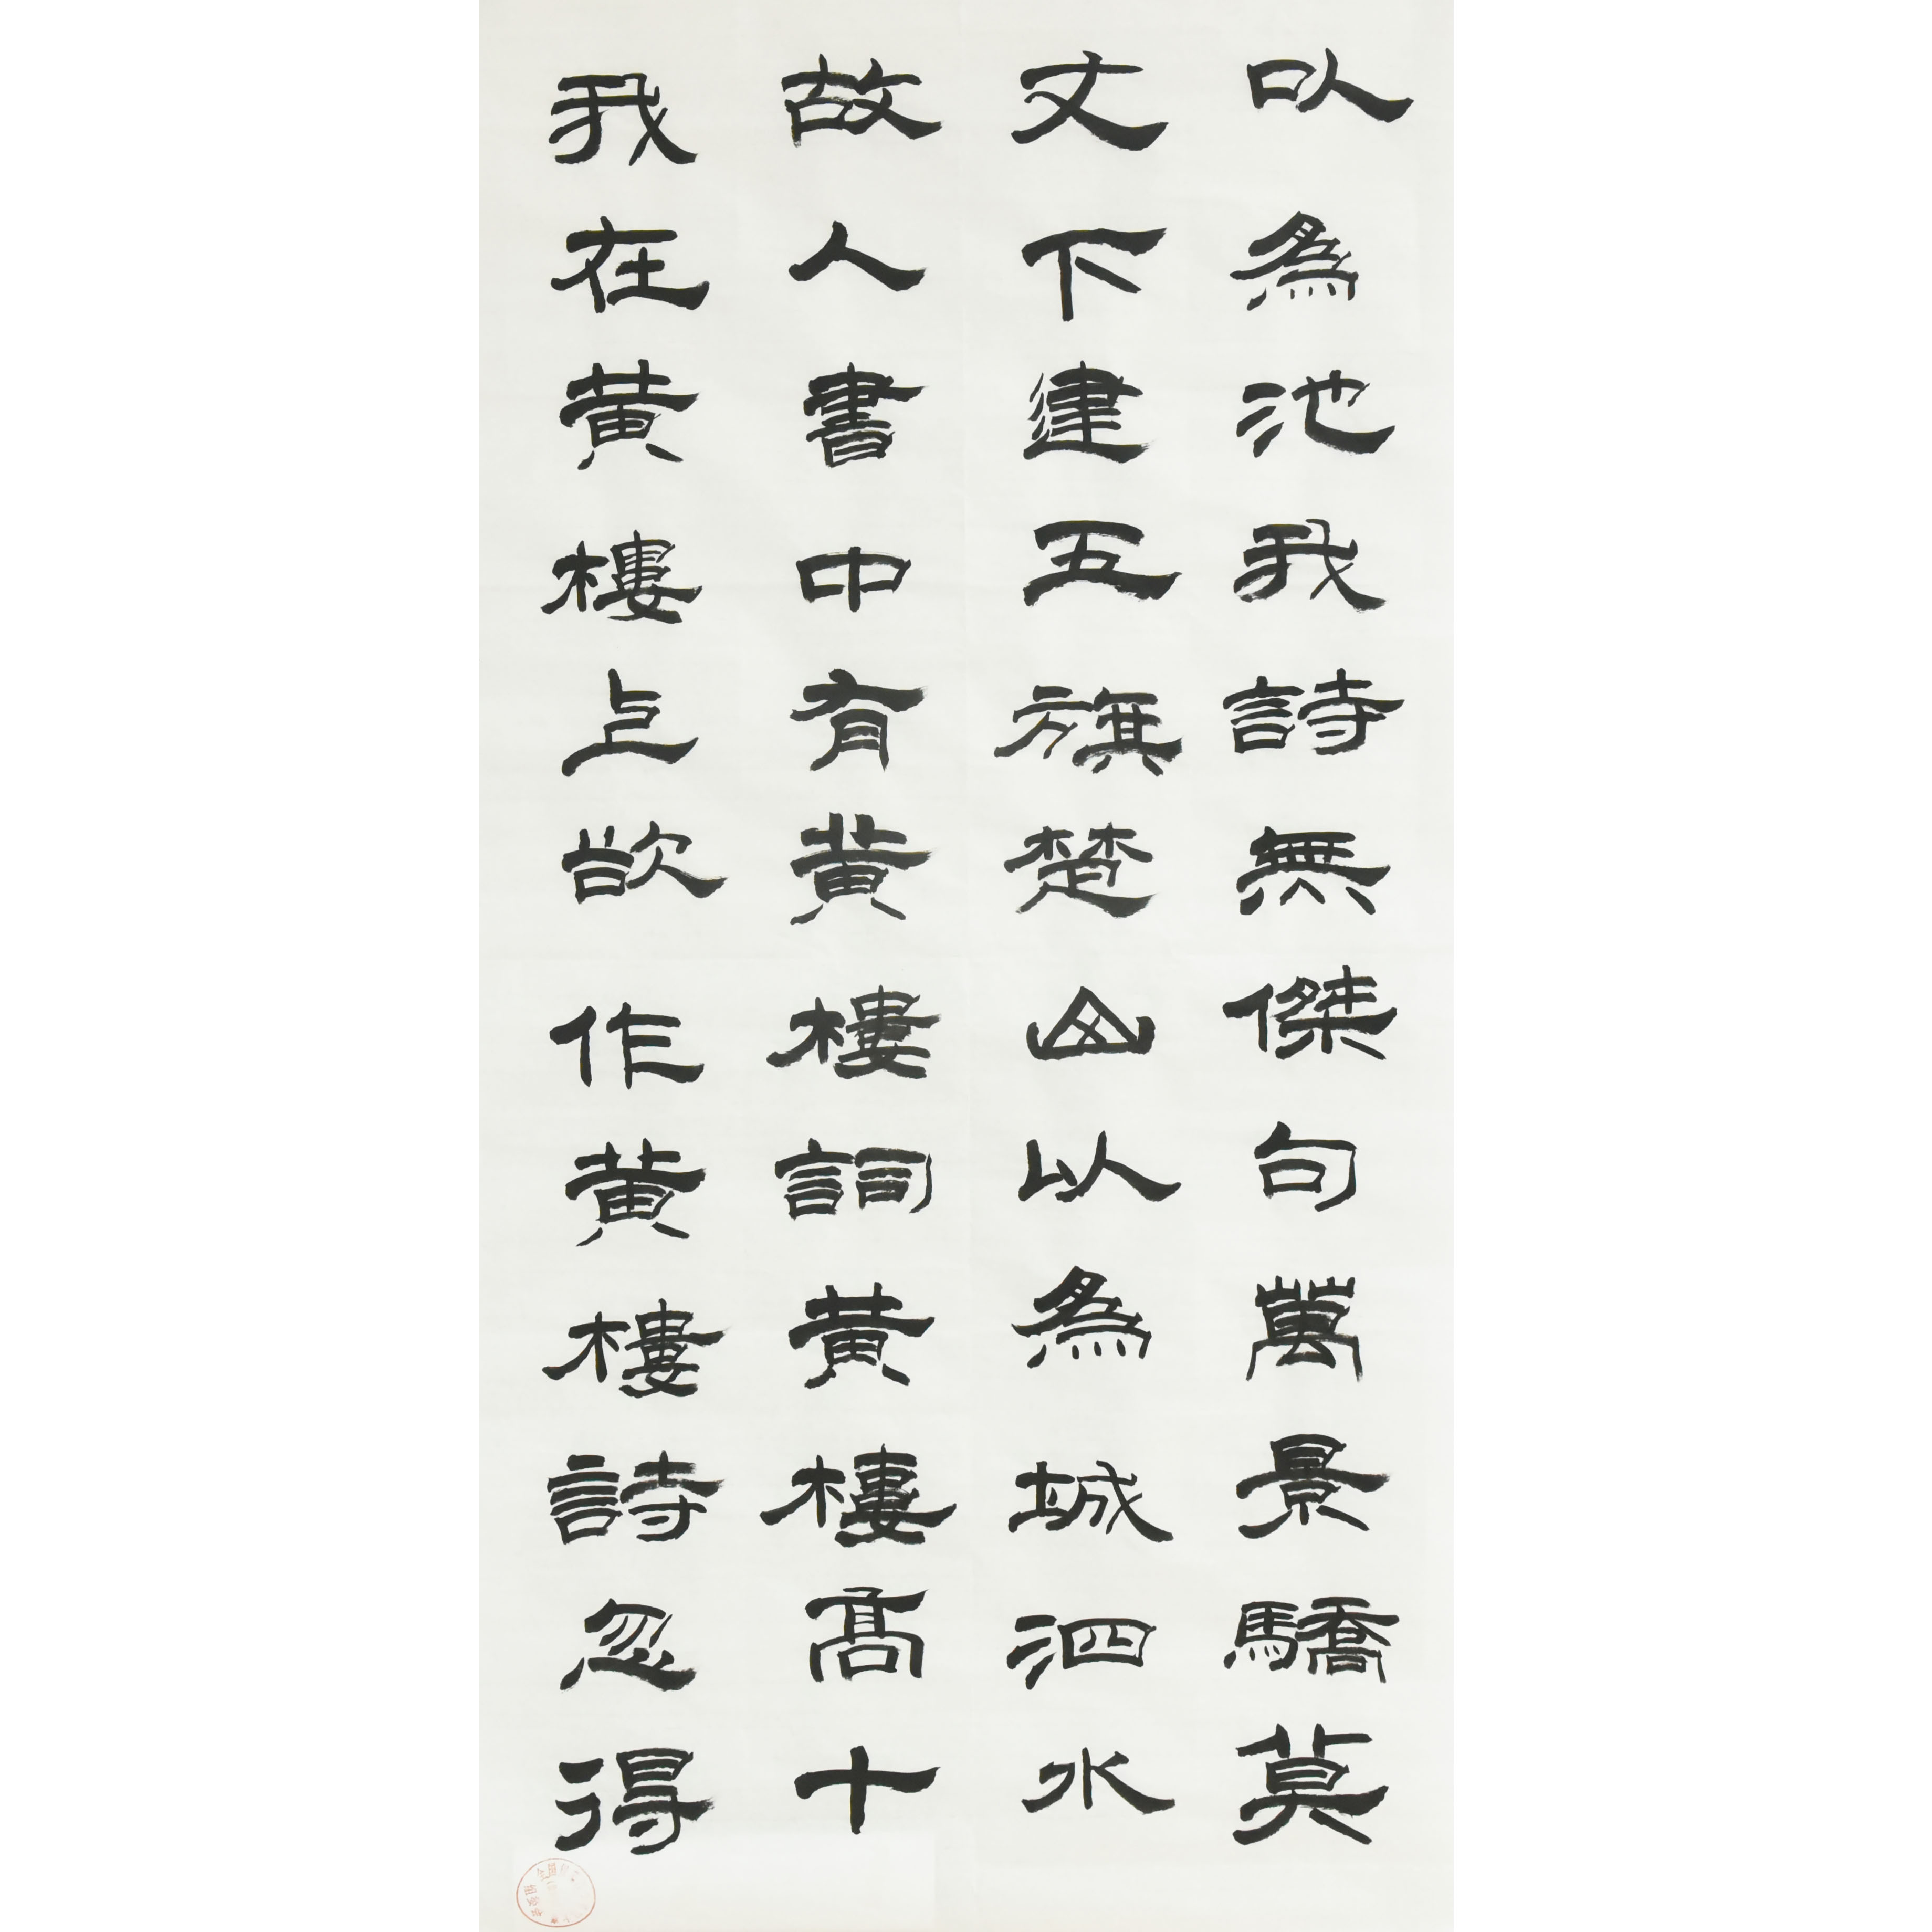 我在黄樓上欲作黄樓詩忽得
故人書中有黄樓詞黄樓髙十
丈下建五旗楚山以為城泗水
以為池我詩無傑句萬景驕莫